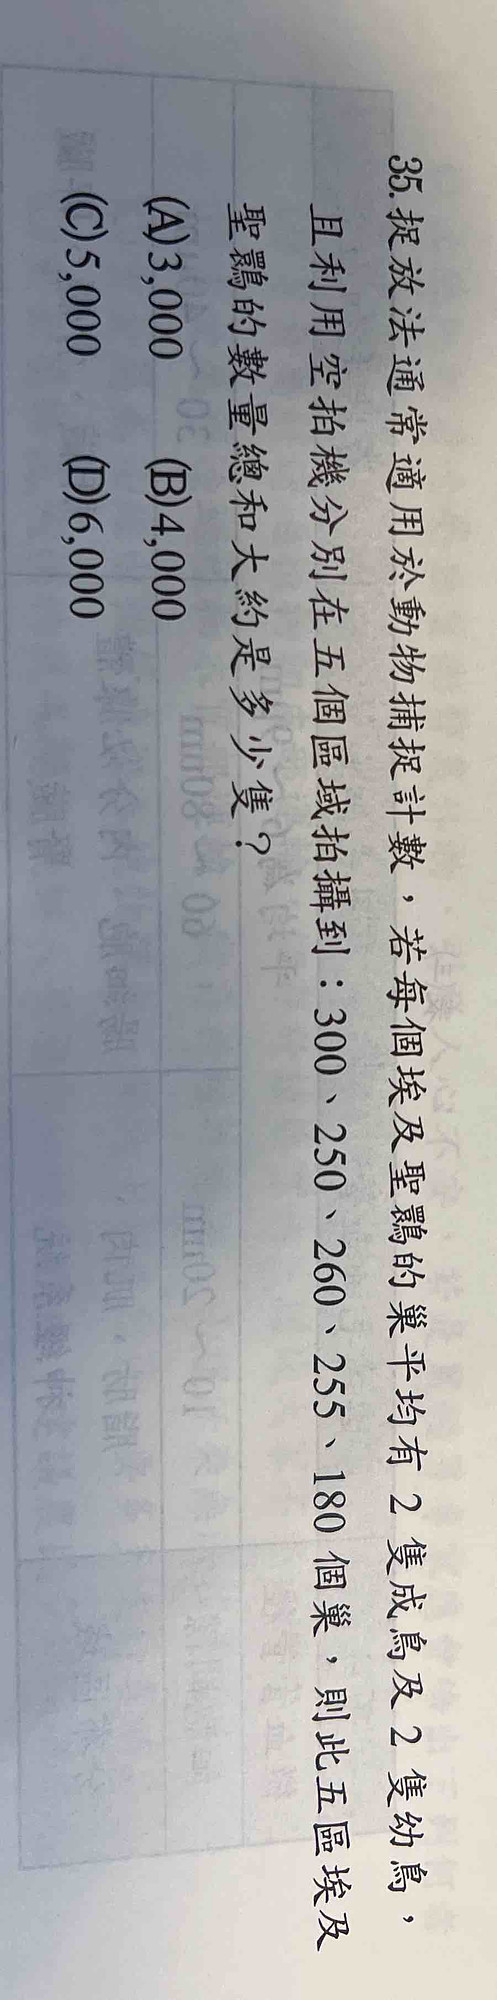 35.捉放法通常適用於動物捕捉計數，若每個埃及聖鹮的巢平均有 2 隻成鳥及 2 隻幼鳥，
且利用空拍機分別在五個區域拍攝到：300、250、260、255、180 個巢，則此五區埃及
聖鹮的數量總和大約是多少隻？
(A)3,000 (B)4,000
(C)5,000 (D)6,000